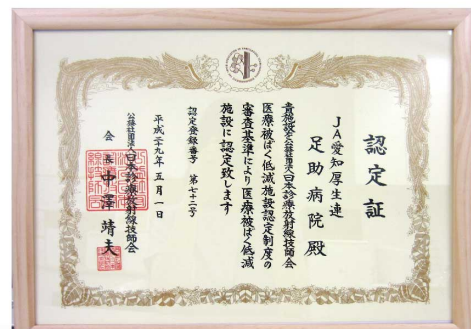 認定証
JA愛知厚生連
足助病院殿
貴施設を公益社団法人日本診療放射線技師会
医療被ばく低減施設認定制度の
審査基準により医療被ばく低減
施設に認定致します
認定登録番号 第七十二号
平成二十九年五月一日
公益社団法人日本診療放射線技師会
会長 中澤靖夫